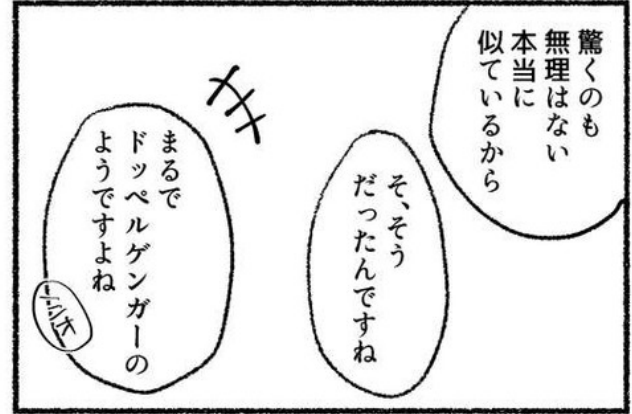 驚くのも
無理はない
本当に
似ているから
そ、そう
だったんですね
まるで
ドッペルゲンガーの
ようですよね